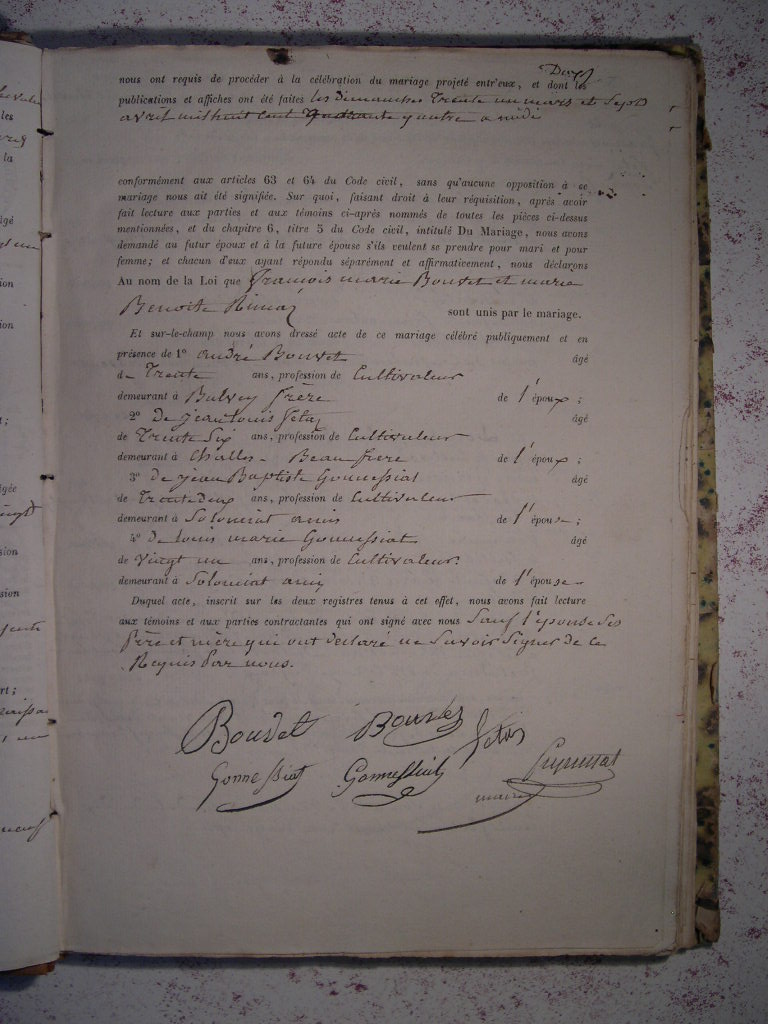 Deux
nous ont requis de procéder à la célébration du mariage projeté entr'eux, et dont les
publications et affiches ont été faites les dimanches Trente un mars et Sept
avril mil huit cent quadrante quatre a midi
conformément aux articles 63 et 64 du Code civil, sans qu'aucune opposition à ce
mariage nous ait été signifiée. Sur quoi, faisant droit à leur réquisition, après avoir
fait lecture aux parties et aux témoins ci-après nommés de toutes les pièces ci-dessus
mentionnées, et du chapitre 6, titre 5 du Code civil, intitulé Du Mariage, nous avons
demandé au futur époux et à la future épouse s'ils veulent se prendre pour mari et pour
femme; et chacun d'eux ayant répondu séparément et affirmativement, nous déclarons
Au nom de la Loi que françois marie Bouvet et marie
Benoite
sont unis par le mariage.
Et sur-le-champ nous avons dressé acte de ce mariage célébré publiquement et en
présence de 1° andré Bouvet âgé
de Trente ans, profession de Cultivateur
demeurant à frère de l'époux;
2° de jean louis âgé
de Trente Six ans, profession de Cultivateur
demeurant à Challes Beau frere de l'époux;
3° de jean Baptiste Gonnessiat âgé
de Trente deux ans, profession de Cultivateur
demeurant à Solomiat amis de l'épouse;
4° de louis marie Gonnessiat âgé
de Vingt un ans, profession de Cultivateur.
demeurant à Solomiat amis de l'épouse
Duquel acte, inscrit sur les deux registres tenus à cet effet, nous avons fait lecture
aux témoins et aux parties contractantes qui ont signé avec nous Sauf l'épouse Ses
Père et mère qui ont declaré ne Savoir Signer de ce
Requis par nous.
Bouvet Bouvet
Gonnessiat Gonnessiat
maire